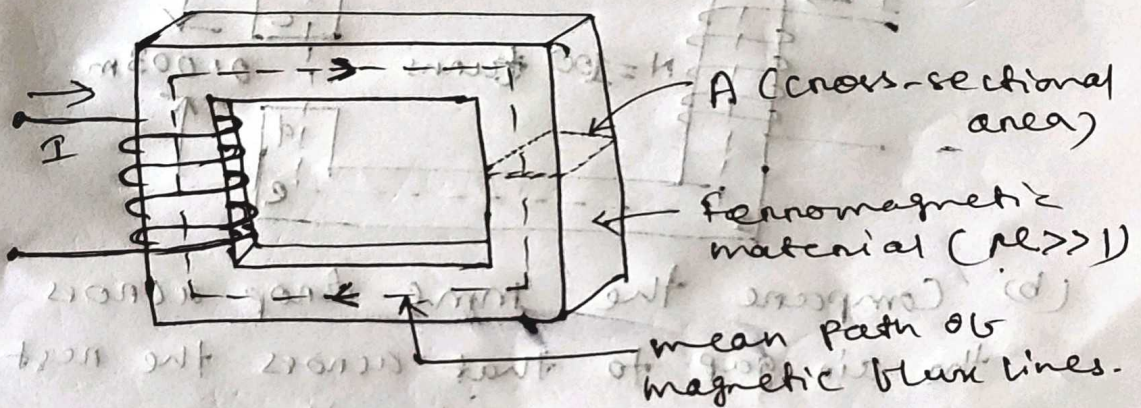 I
A (cross-sectional
area)
ferromagnetic
material (μr>>1)
mean path of
magnetic flux lines.